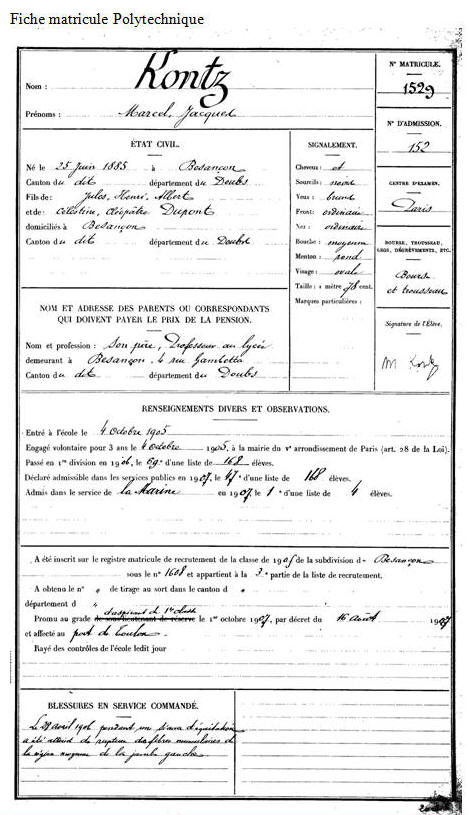 Fiche matricule Polytechnique
Nom : Kontz
Prénoms : Marcel, Jacques
N° MATRICULE.
1529
N° D'ADMISSION.
152
CENTRE D'EXAMEN.
Paris
BOURSE, TROUSSEAU,
LEGS, DÉGRÈVEMENTS, ETC.
Bourse
et trousseau
Signature de l'Élève.
M Kontz
ÉTAT CIVIL.
Né le 25 Juin 1885 à Besançon
Canton du dit département du Doubs
Fils de Jules, Henri, Albert
et de Célestine, Cléopâtre Dupont
domiciliés à Besançon
Canton du dit département du Doubs
SIGNALEMENT.
Cheveux : et
Sourcils : noirs
Yeux : bruns
Front : ordinaire
Nez : ordinaire
Bouche : moyenne
Menton : rond
Visage : ovale
Taille : 1 mètre 78 cent.
Marques particulières :
NOM ET ADRESSE DES PARENTS OU CORRESPONDANTS
QUI DOIVENT PAYER LE PRIX DE LA PENSION.
Nom et profession : Son père, Professeur au lycée
demeurant à Besançon, 4 rue Gambetta
Canton du dit département du Doubs
RENSEIGNEMENTS DIVERS ET OBSERVATIONS.
Entré à l'école le 4 Octobre 1905
Engagé volontaire pour 3 ans le 4 Octobre 1905, à la mairie du Ve arrondissement de Paris (art. 28 de la Loi).
Passé en 1re division en 1906, le 59e d'une liste de 168 élèves.
Déclaré admissible dans les services publics en 1907, le 47e d'une liste de 168 élèves.
Admis dans le service de la Marine en 1907 le 1er d'une liste de 4 élèves.
A été inscrit sur le registre matricule de recrutement de la classe de 1905 de la subdivision de Besançon
sous le n° 1608 et appartient à la 3e partie de la liste de recrutement.
A obtenu le n° " de tirage au sort dans le canton d "
département d "
d'aspirant de 1re classe
Promu au grade de sous-lieutenant de réserve le 1er octobre 1907, par décret du 16 Août 1907
et affecté au port de Toulon.
Rayé des contrôles de l'école ledit jour
BLESSURES EN SERVICE COMMANDÉ.
Le 28 avril 1906 pendant une séance d'équitation
a été atteint de rupture des fibres musculaires de
la région moyenne de la jambe gauche